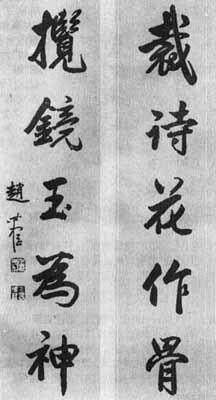 裁诗花作骨
攬鏡玉為神
趙